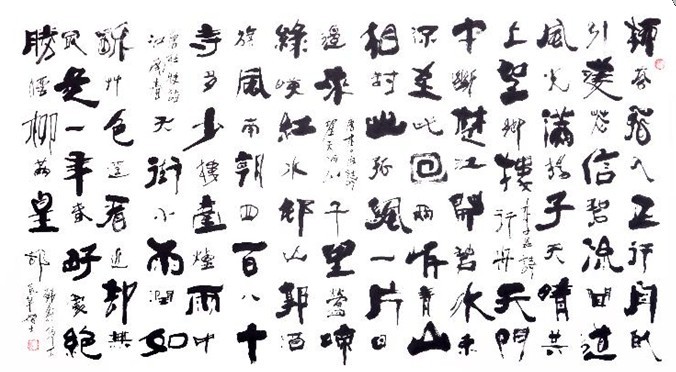 柳花飛入正行舟卧
引菱花信碧流聞道
風光滿揚子天晴共
上望鄉樓 李益詩 行舟 天門
中斷楚江開碧水東
流至此回兩岸青山
相對出孤帆一片日
邊來 唐李白詩 望天門山 千里鶯啼
綠映紅水村山郭酒
旗風南朝四百八十
寺多少樓臺煙雨中
唐杜牧詩 江南春 天街小雨潤如
酥草色遙看近却無
最是一年春好處絕
勝煙柳滿皇都